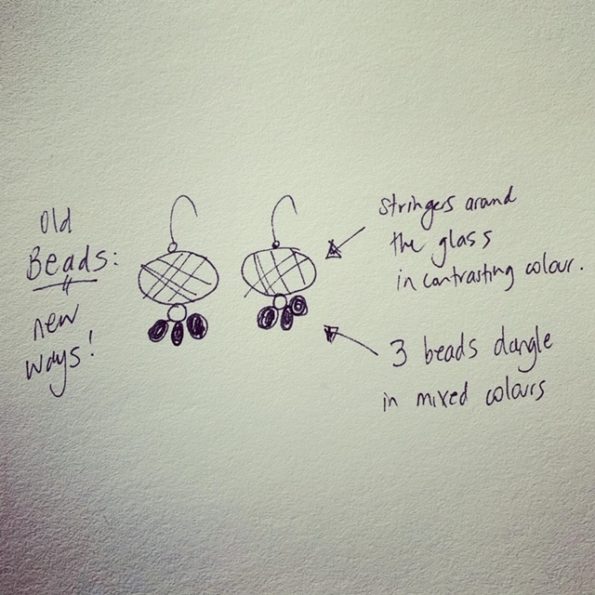 Old
Beads:
new
ways!
stringers around
the glass
in contrasting colour.
3 beads dangle
in mixed colours